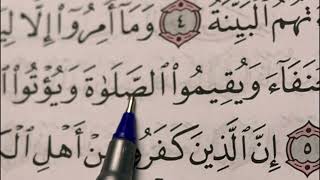 تهم البينة ٤ وما أمروا إلا
حنفاء ويقيموا الصلوٰة ويؤتوا
٥ إن الذين كفروا من أهل